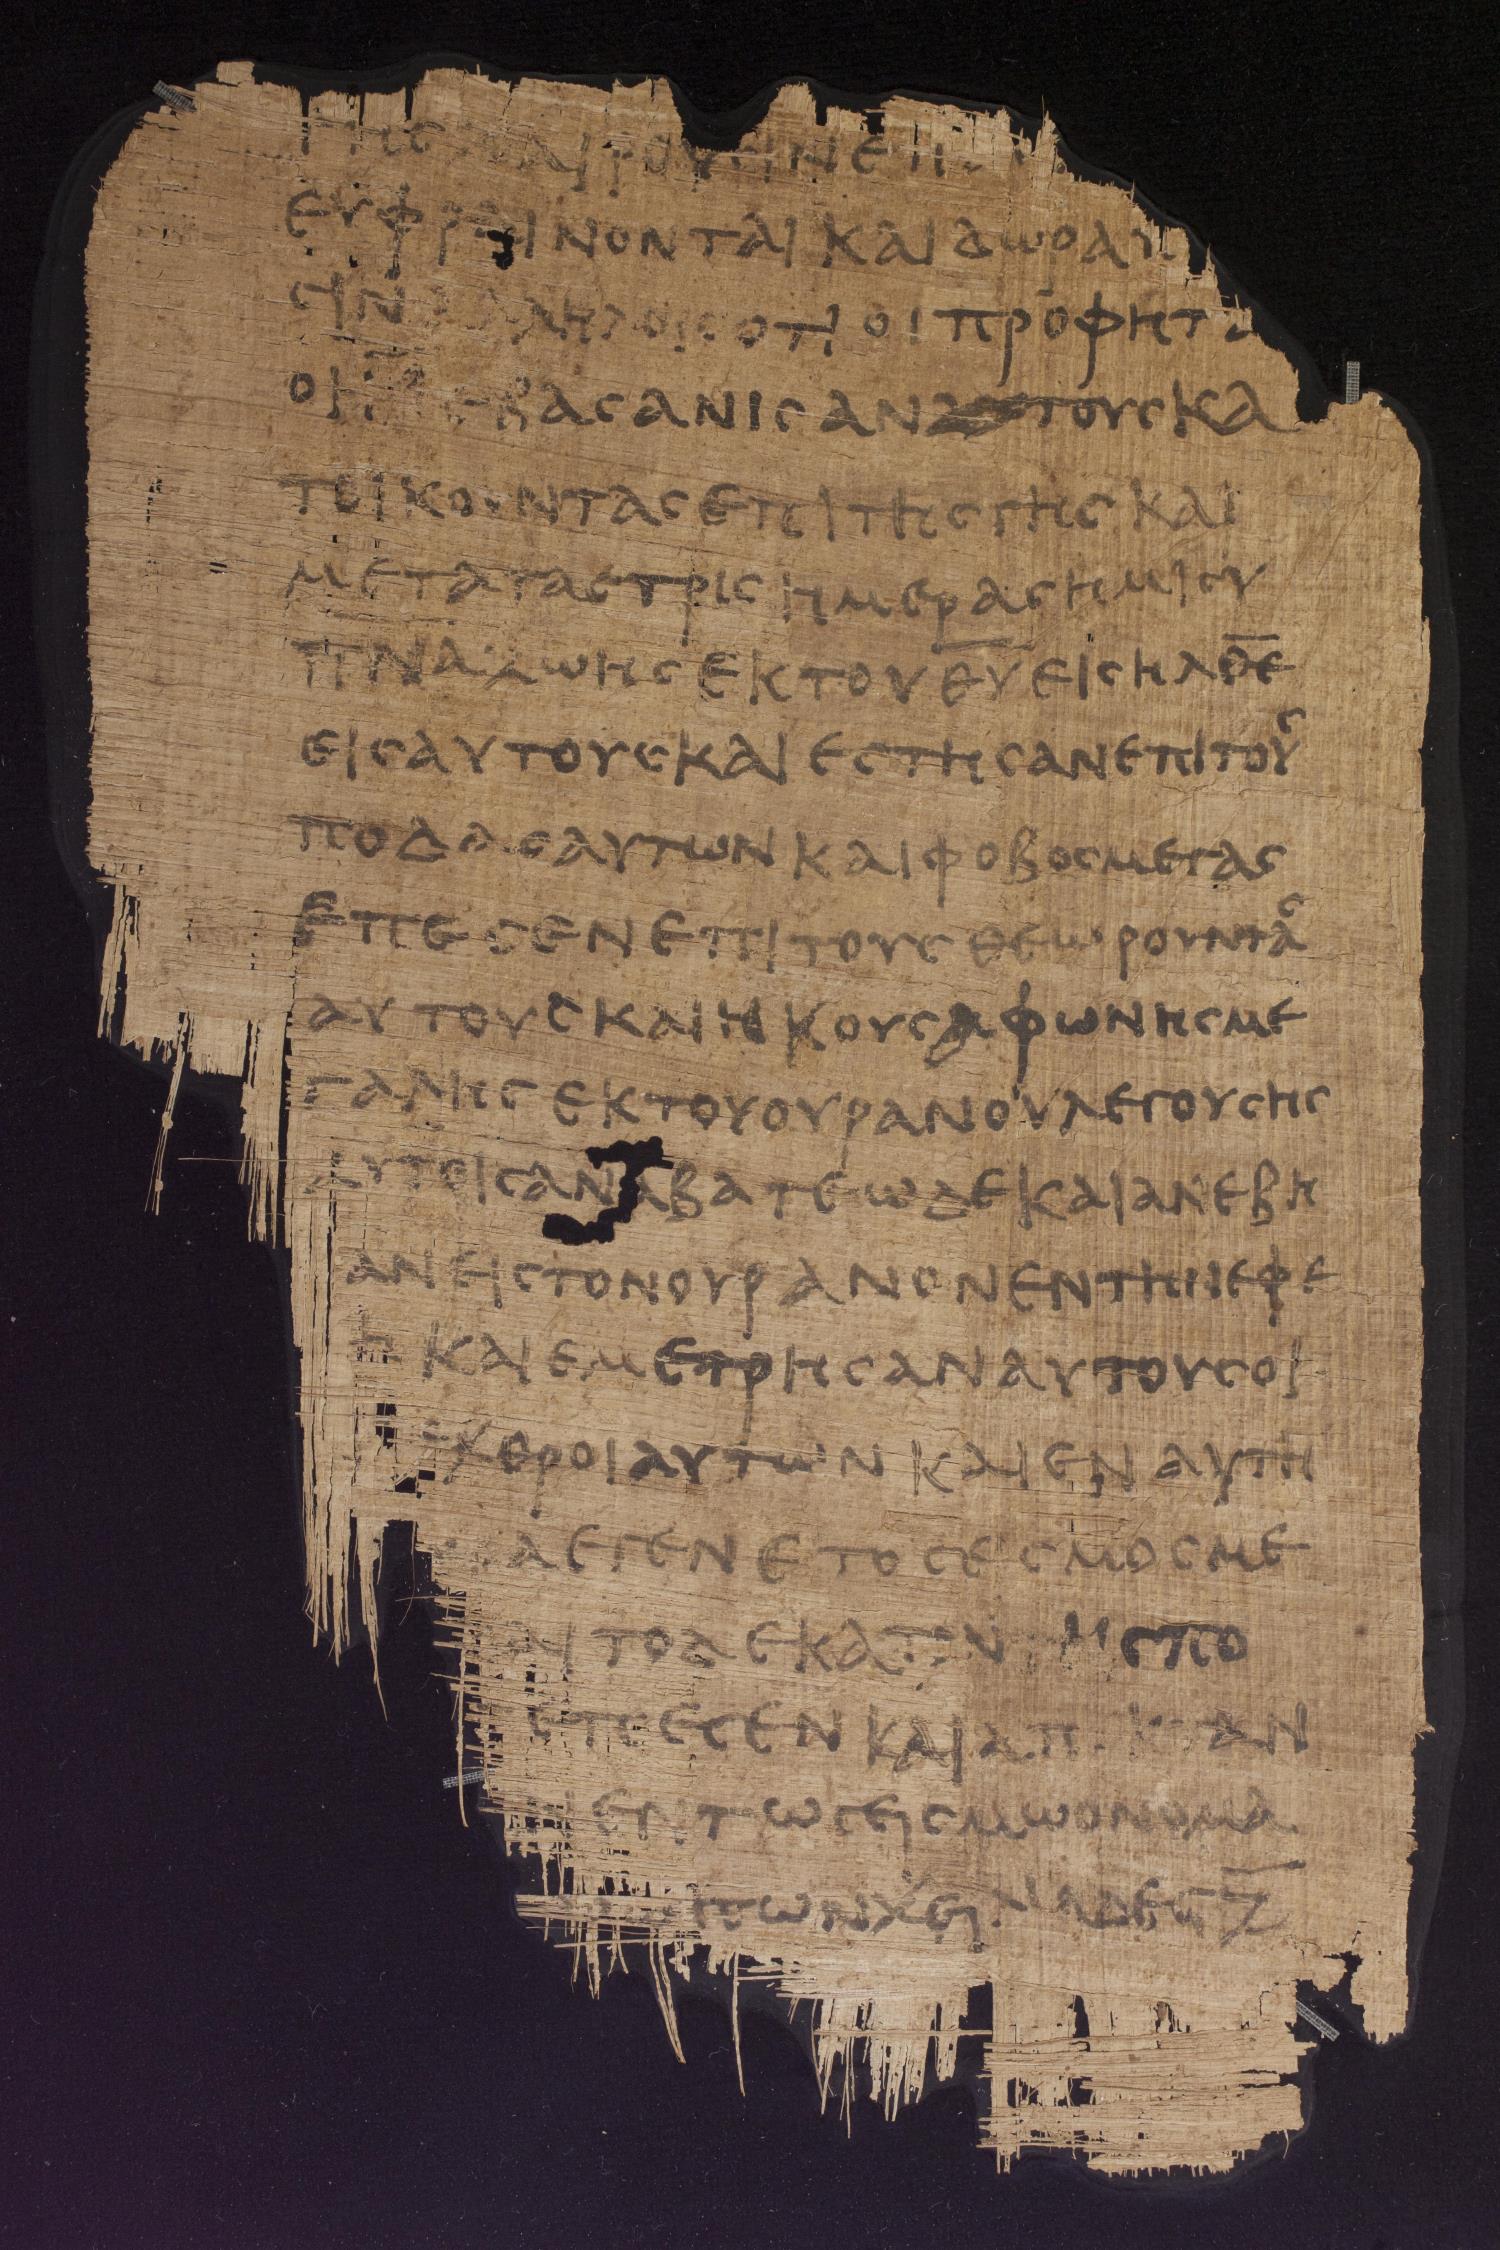 γης χαιρουσιν επ
ευφραινονται και δωρα π
σιν αλληλοις οτι οι προφητα
οι β εβασανισαν τους κα
τοικουντας επι της γης και
μετα τας τρις ημερας ημισυ
π̅ν̅α̅ ζωης εκ του θ̅υ̅ εισηλθε̅
εις αυτους και εστησαν επι τους
ποδας αυτων και φοβος μεγας
επεσεν επι τους θεωρουντας
αυτους και ηκουσα φωνης με
γαλης εκ του ουρανου λεγουσης
αυτοις αναβατε ωδε και ανεβη
αν εις τον ουρανον εν τη νεφε
η και εμετρησαν αυτους οι
εχθροι αυτων και εν αυτη
α εγενετο σεσμος με
αι το δεκατον της πο
ε επεσεν και απεκταν
εν τω σεισμω ονομα
πων χειλιαδες ζ̅